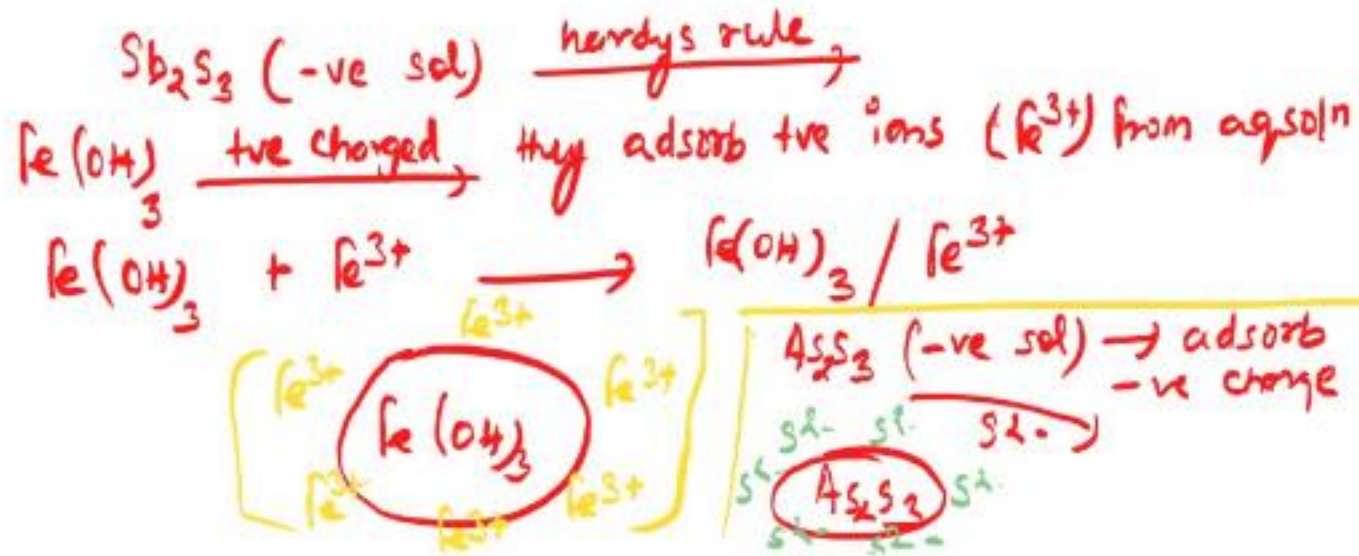 Sb₂S₃ (-ve sol) hardys rule
Fe(OH)₃ +ve charged, they adsorb +ve ions (Fe³⁺) from aqsolⁿ
Fe(OH)₃ + Fe³⁺ → Fe(OH)₃ / Fe³⁺
Fe³⁺
Fe³⁺ Fe³⁺
Fe(OH)₃
Fe³⁺ Fe³⁺ Fe³⁺
As₂S₃ (-ve sol) → adsorb
-ve charge
S²⁻
S²⁻ S²⁻
S²⁻ As₂S₃ S²⁻
S²⁻ S²⁻